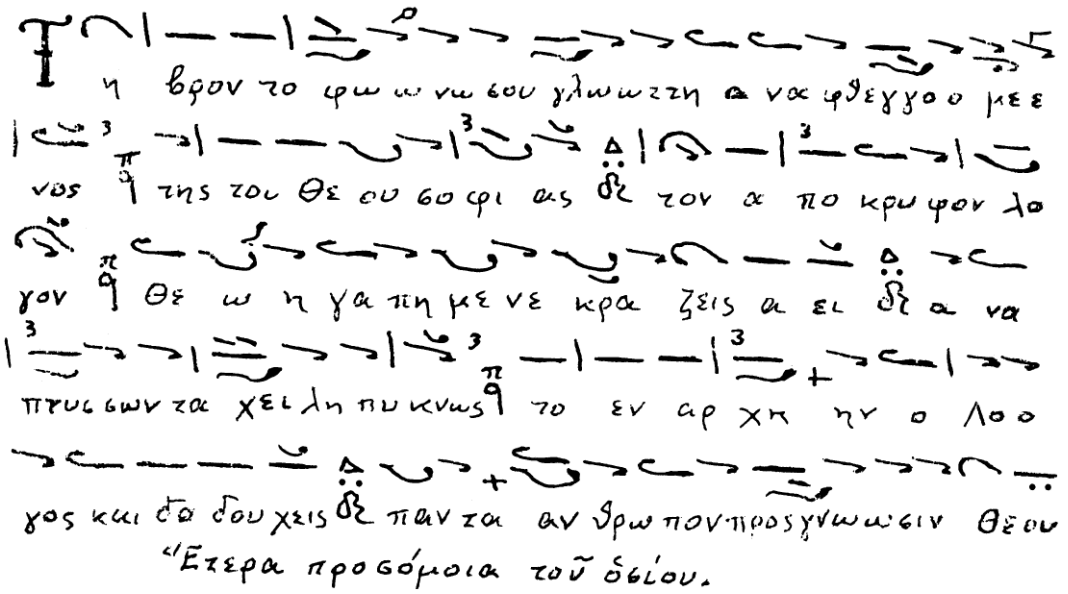 Τη βρον το φω ω νω σου γλωωττη α να φθεγγοο μεε
νος της του Θε ου σο φι ας τον α πο κρυ φον λο
γον Θε ω η γα πη με νε κρα ζεις α ει α να
πτυσσων τα χει λη πυ κνως το εν αρ χη ην ο Λοο
γος και δα δου χεις παν τα αν θρω πον προς γνωωσιν Θεου
Ἕτερα προσόμοια τοῦ ὁσίου.